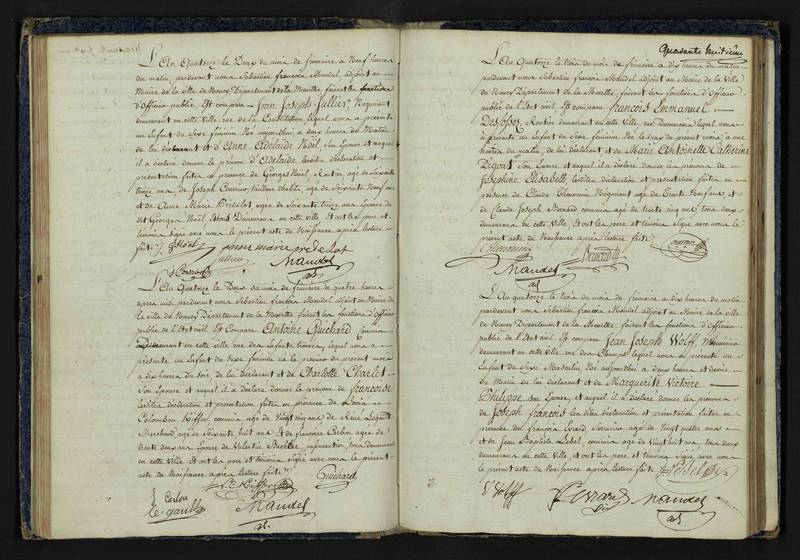 L'An Quatorze le Deux du mois de frimaire à Neuf heures
du matin, pardevant nous Sébastien françois Mandel adjoint au
Maire de la ville de Nancy Département de la Meurthe, faisant les fonctions
d'Officier public. Est comparu Jean Joseph Jullier, Négociant
demeurant en cette Ville rue de la Constitution lequel nous a présenté
un Enfant du Sexe féminin Né aujourd'hui à deux heures du Matin,
de lui déclarant et d'Anne Adelaide Noël son Epouse et auquel
il a déclaré donner le prénom d'Adelaide lesdites déclaration et
présentation faites en présence de Georges Noël, Rentier agé de Soixante
treize ans, de Joseph Tailleur d'habits, agé de Soixante Neuf ans
et de Anne Marie Bredelot agée de Soixante treize ans Epouse du
dit Georges Noël demeurans en cette ville. Et ont les père et
témoins signé avec nous le présent acte de Naissance après lecture
faite. Noël anne marie
Jullier Mandel
adt
L'An Quatorze le Deux du mois de frimaire à quatre heures
après midi pardevant nous Sébastien françois Mandel adjoint au Maire de la
ville de Nancy Département de la Meurthe faisant les fonctions d'Officier
public de l'état civil. Est Comparu Antoine Guichard, Commis
demeurant en cette ville rue lequel nous a
présenté un Enfant du Sexe féminin né le premier du présent mois
à dix heures du soir, de lui déclarant et de Charlotte Charlet
son Epouse et auquel il a déclaré donner le prénom de françoise
lesdites déclaration et présentation faites en présence de Louis
Colombon Kiffer, commis agé de Vingt cinq ans de René Legault
Marchand agé de Soixante huit ans et de françoise Carlou agée de
trente deux ans Epouse de Valentin tous demeurans
en cette Ville. Et ont les père et témoins Signé avec nous le présent
acte de Naissance après lecture faite.
Kiffer Guichard
f Carlou
le gault Mandel
adt
Quarante huitième
L'An Quatorze le trois du mois de frimaire à dix heures du matin
pardevant nous Sébastien françois Mandel adjoint au Maire de la Ville
de Nancy Département de la Meurthe, faisant les fonctions d'Officier
public de l'Etat civil. Est comparu françois Emmanuel
Desfosses, Rentier demeurant en cette Ville rue lequel nous
a présenté un Enfant du Sexe féminin Né le deux du présent mois à une
heure du matin, de lui déclarant et de Marie Antoinette Catherine
Digout son Epouse et auquel il a déclaré donner les prénoms de
Josephine Elisabeth lesdites déclaration et présentation faites en
présence de Claude Thouvenin Négociant agé de Trente Neuf ans, et
de Claude Joseph Bernard commis agé de trente cinq ans tous deux
demeurans de cette Ville. Et ont les père et témoins Signé avec nous le
présent acte de Naissance après lecture faite.
Thouvenin Bernard
Mandel
adt
L'An quatorze le trois du mois de frimaire à dix heures du matin
pardevant nous Sébastien françois Mandel adjoint au Maire de la ville
de Nancy Département de la Meurthe, faisant les fonctions d'Officier
public de l'Etat Civil. Est comparu Jean Joseph Wolff, Menuisier
demeurant en cette ville rue des Champs lequel nous a présenté un
Enfant du Sexe Masculin Né aujourd'hui à deux heures et demie
du Matin de lui déclarant et de Marguerite Victoire
Philippe son Epouse, et auquel il a déclaré donner les prénoms
de Joseph François les dites déclaration et présentation faites en
présence de françois Evard Serrurier agé de Vingt quatre ans
et de Jean Baptiste Lebel, commis agé de Vingt huit ans tous deux
demeurans en cette ville. Et ont les père et témoins Signé avec nous
le présent acte de Naissance après lecture faite. Lebel
J Wolff Mandel
adt